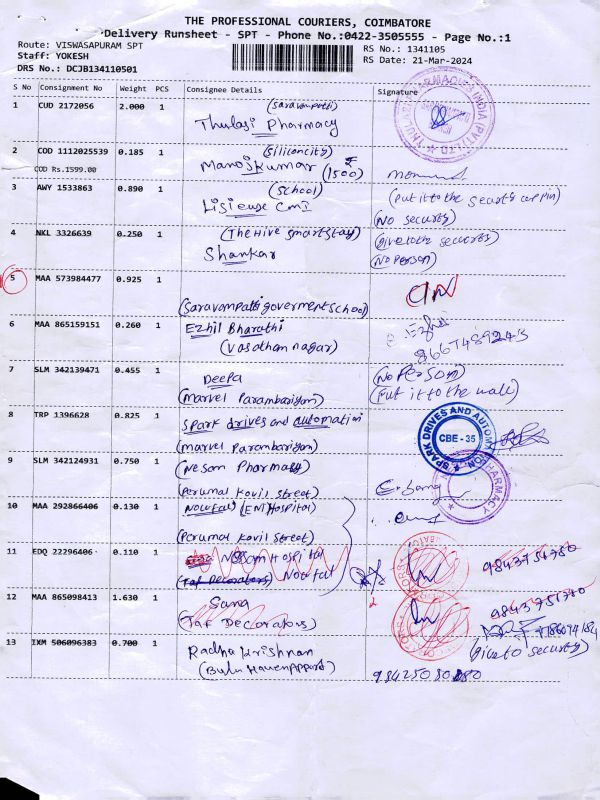 THE PROFESSIONAL COURIERS, COIMBATORE
Delivery Runsheet - SPT - Phone No.:0422-3505555 - Page No.:1
Route: VISWASAPURAM SPT
Staff: YOKESH
DRS No.: DCJB134110501
RS No.: 1341105
RS Date: 21-Mar-2024
S No Consignment No Weight PCS Consignee Details Signature
1 CUD 2172056 2.000 1 (Saravampatti)
Thulasi Pharmacy
2 COD 1112025539 0.185 1 (Siliconcity)
COD Rs.1599.00 Manojkumar (1500)
3 AWY 1533863 0.890 1 (School)
Lisieuse CMI
(No security)
4 NKL 3326639 0.250 1 (The Hive Smart Stay)
Shankar
(Give to the security)
(No Person)
5 MAA 573984477 0.925 1
(Saravampatti goverment School)
6 MAA 865159151 0.260 1 Ezhil Bharathi
(Vasatham nagar)
7 SLM 342139471 0.455 1 Deepa
(Marvel Parambariyam)
(No Person)
(Put it to the wall)
8 TRP 1396628 0.825 1 Spark drives and automation
(Marvel Parambariyam)
SPARK DRIVES AND AUTOMATION
CBE - 35
9 SLM 342124931 0.750 1 (Nesam Pharmacy
(Perumal Kovil Street)
PHARMACY
10 MAA 292866406 0.130 1 Nowfal (ENT Hospital)
(Perumal Kovil Street)
11 EDQ 22296406 0.110 1 Hospital
(Taf Decorators) Nowfal
9843751780
12 MAA 865098413 1.630 1 Sana
(Taf Decorators)
13 IXM 506096383 0.700 1 Radha Krishnan
(Give to security)